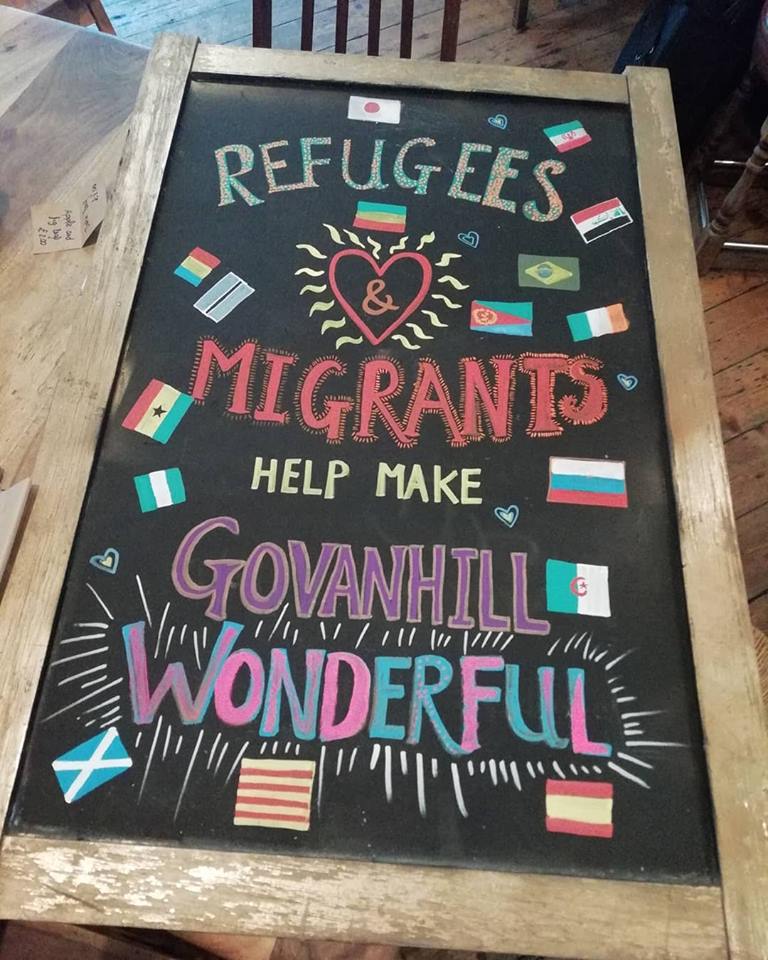 REFUGEES
&
MIGRANTS
HELP MAKE
GOVANHILL
WONDERFUL